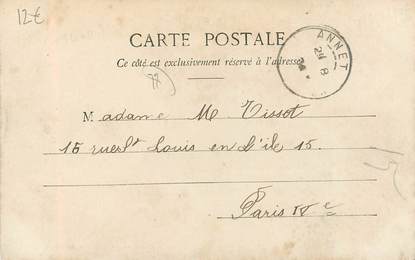 12€
CARTE POSTALE
Ce côté est exclusivement réservé à l'adresse
ANNET
24 8
Madame M. Tissot
15 rue St Louis en l'ile 15.
Paris IV e